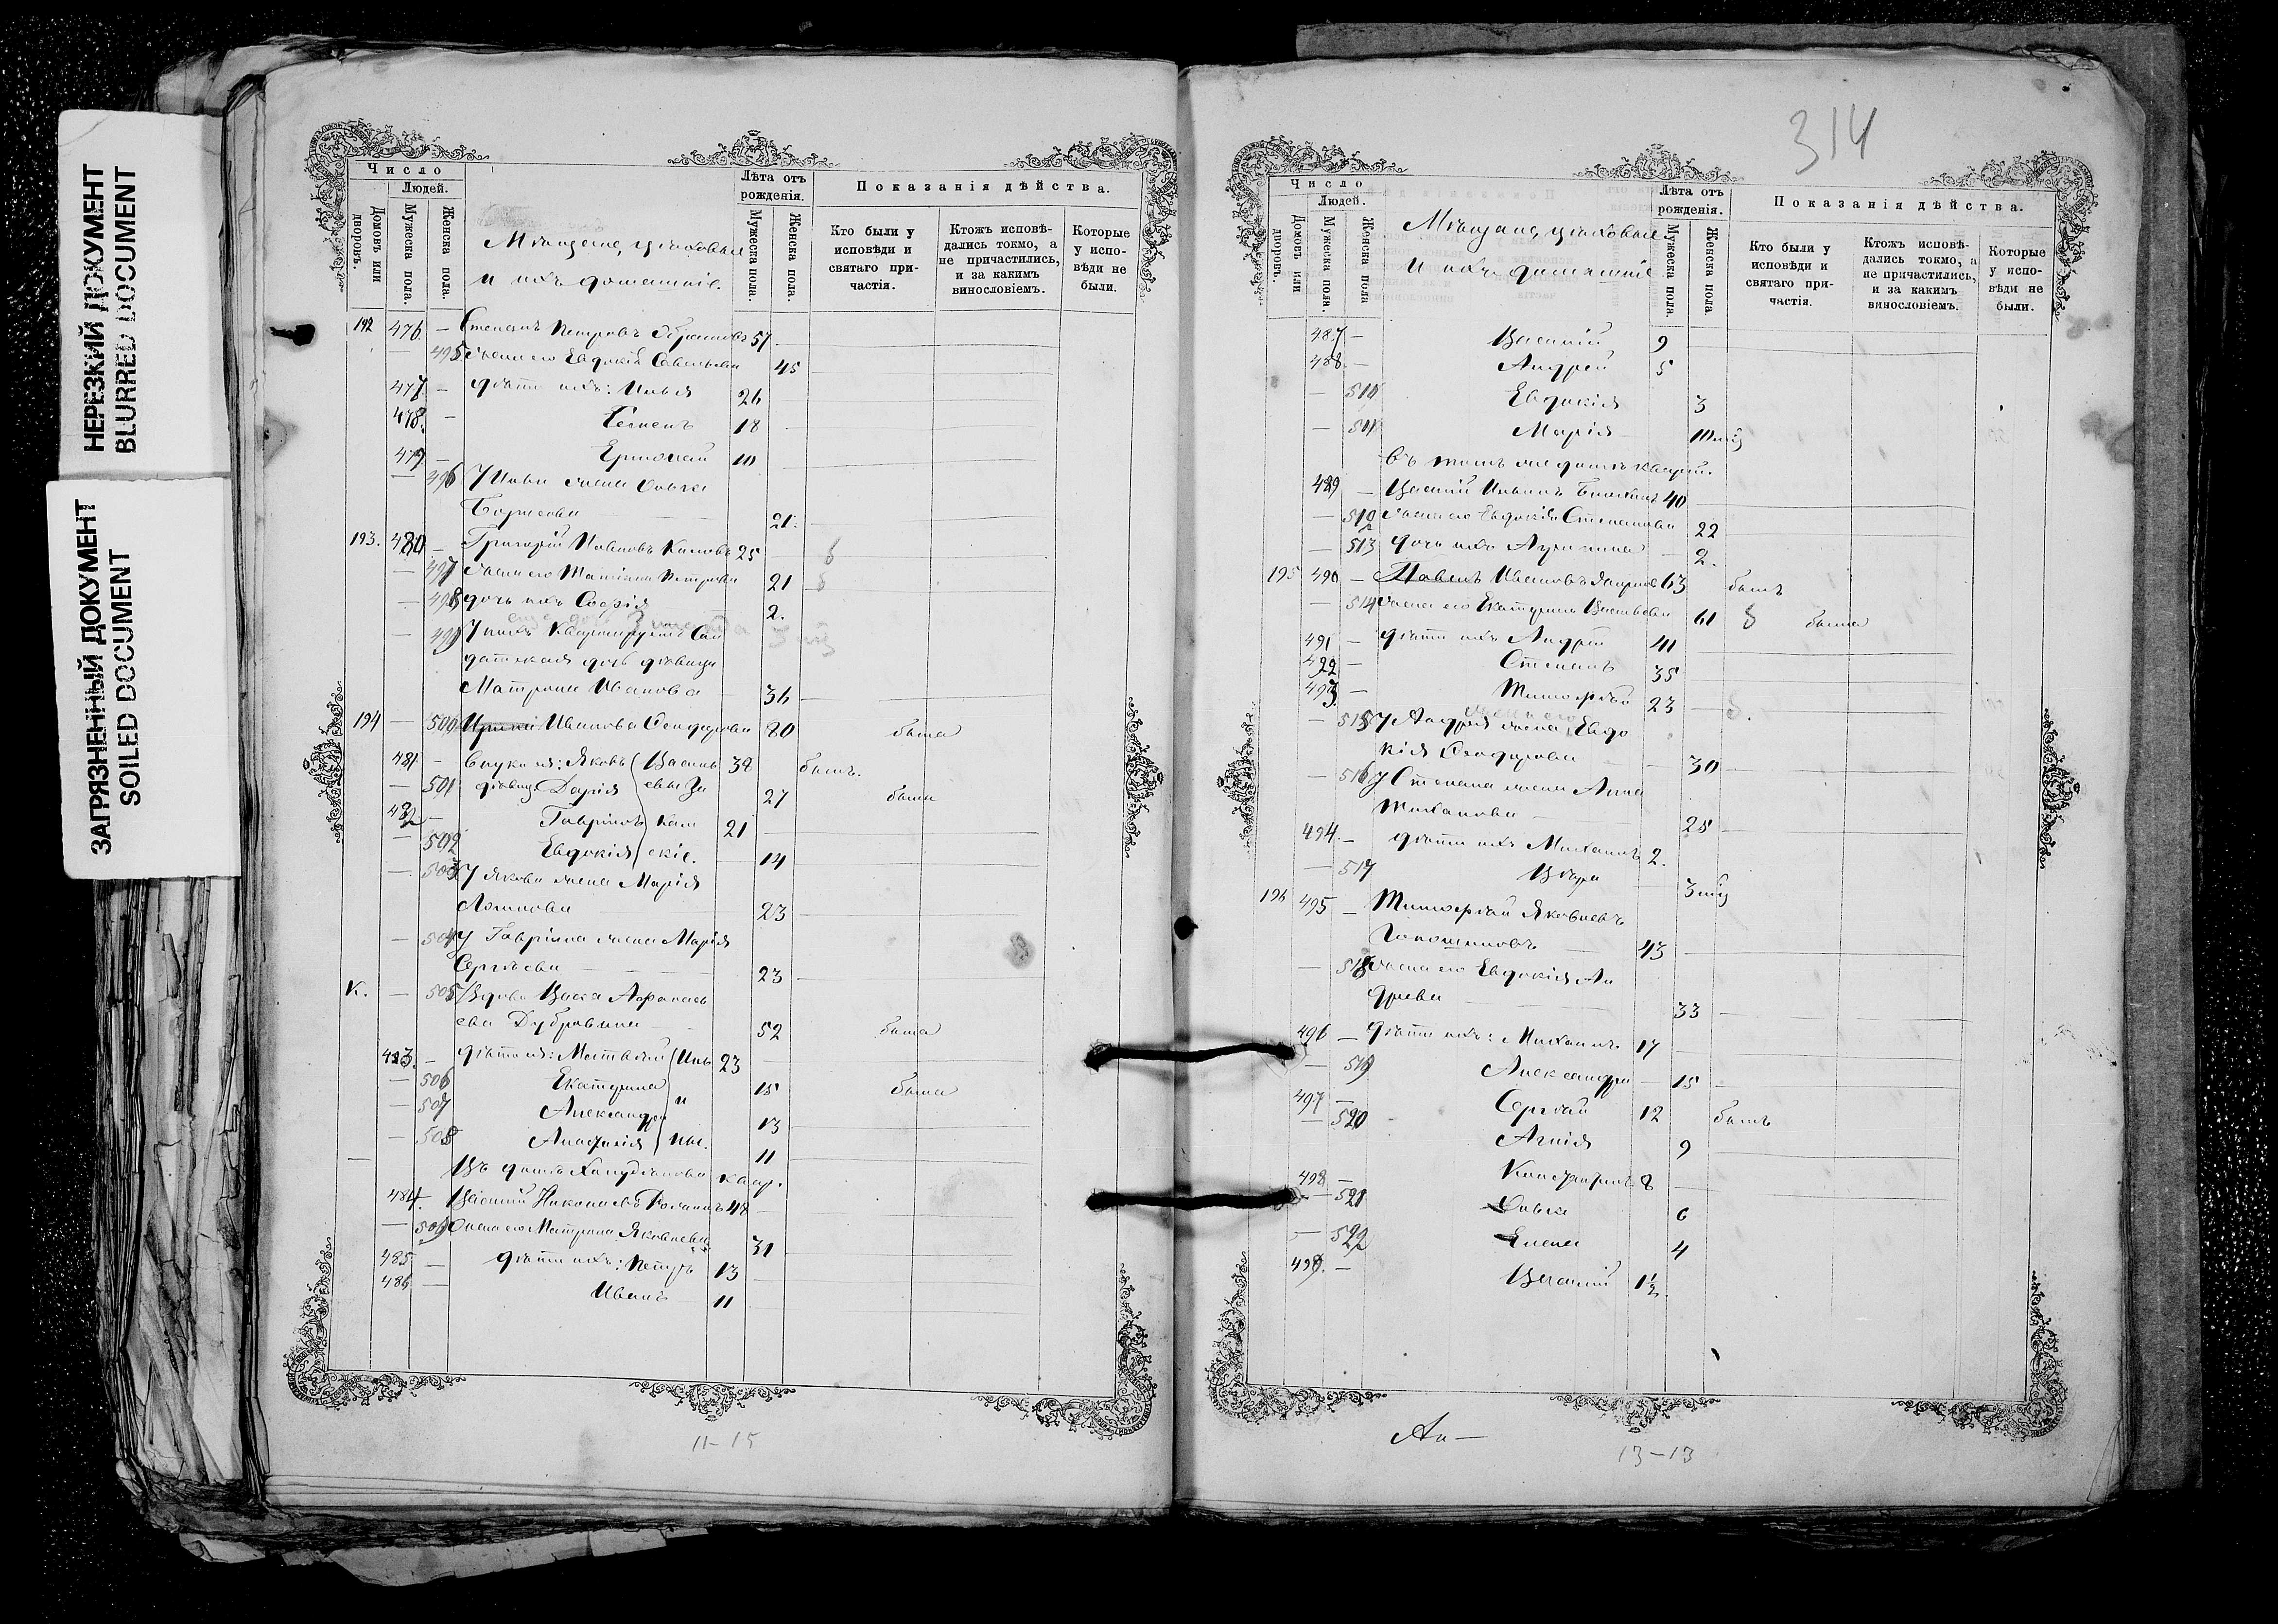 НЕРЕЗКИЙ ДОКУМЕНТ
BLURRED DOCUMENT
ЗАГРЯЗНЕННЫЙ ДОКУМЕНТ
SOILED DOCUMENT
Число
Людей.
Домовъ или дворовъ.
Мужеска пола.
Женска пола.
Мѣщане, цѣховые
и ихъ домашніе.
Лѣта отъ рожденія.
Мужеска пола.
Женска пола.
Показанія дѣйства.
Кто были у исповѣди и святаго причастія.
Ктожъ исповѣдались токмо, а не причастились, и за какимъ винословіемъ.
Которые у исповѣди не были.
192 476 — Степанъ Петровъ 57
— 495 жена его Евдокія Савельева 45
477 — дѣти ихъ: Илья 26
478 — Семенъ 18
479 — Ермолай 10
— 496 У Ильи жена Ольга
Борисова 21
193. 480 — Григорій Ивановъ 25 б
— 497 жена его Татіана Петрова 21 б
— 498 дочь ихъ Софія 2.
— 499 У нихъ квартируетъ Сол
датская дочь дѣвица
Матрона Иванова 36
194 — 500 Ивановa Ѳеодорова 80 была
481 — Внуки ея: Яковъ Василь 32 былъ.
— 501 дѣвица Дарія евы 27 была
482 — Гавріилъ 21
— 502 Евдокія скіе. 14
— 503 У Якова жена Марія
Логинова 23
— 504 У Гавріила жена Марія
Сергѣева 23
К. — 505 Вдова Васса Аѳанась
ева Дубровина 52 была
483 — дѣти ея: Матвѣй Иль 23
— 506 Екатерина и 15 была
— 507 Александра 13
— 508 Анафролія ны. 11
Въ домѣ квар.
484. Василій Николаевъ 48
— 509 Жена его Матрона Яковлева 31
485 — дѣти ихъ: Петръ 13
486 — Иванъ 11
11-15
314
Число
Людей.
Домовъ или дворовъ.
Мужеска пола.
Женска пола
Мѣщане, цѣховые
и ихъ домашніе
Лѣта отъ рожденія.
Мужеска пола.
Женска пола.
Показанія дѣйства.
Кто были у исповѣди и святаго причастія.
Ктожъ исповѣдались токмо, а не причастились, и за какимъ винословіемъ.
Которые у исповѣди не были.
487 — Василій 9
488 — Андрей 5
— 510 Евдокія 3
— 511 Марія 10 мѣ
Въ томъ же домѣ кварт.
489 — Василій Ильинъ 40
— 512 жена его Евдокія Степанова 22
— 513 дочь ихъ 2.
195 490 — Павелъ Ивановъ 63 былъ
— 514 жена его Екатерина Васильева 61 б была
491 — дѣти ихъ Андрей 41
492 — Степанъ 35
493 — Тимоѳей 23 б.
— 515 У Андрея жена Евдо
кія Ѳеодорова 30
— 516 У Степана жена Анна
Михайлова 28
494 — дѣти ихъ Михаилъ 2.
— 517 Вѣра 3 мѣ
196 495 — Тимоѳей Яковлевъ
43
— 518 жена его Евдокія Ан
дреева 33
496 — дѣти ихъ: Михаилъ 17
— 519 Александра 15
497 — Сергѣй 12 былъ
— 520 Агнія 9
498 — Константинъ 8
— 521 Ольга 6
— 522 Елена 4
499. — Василій 1½
Ан—
13-13